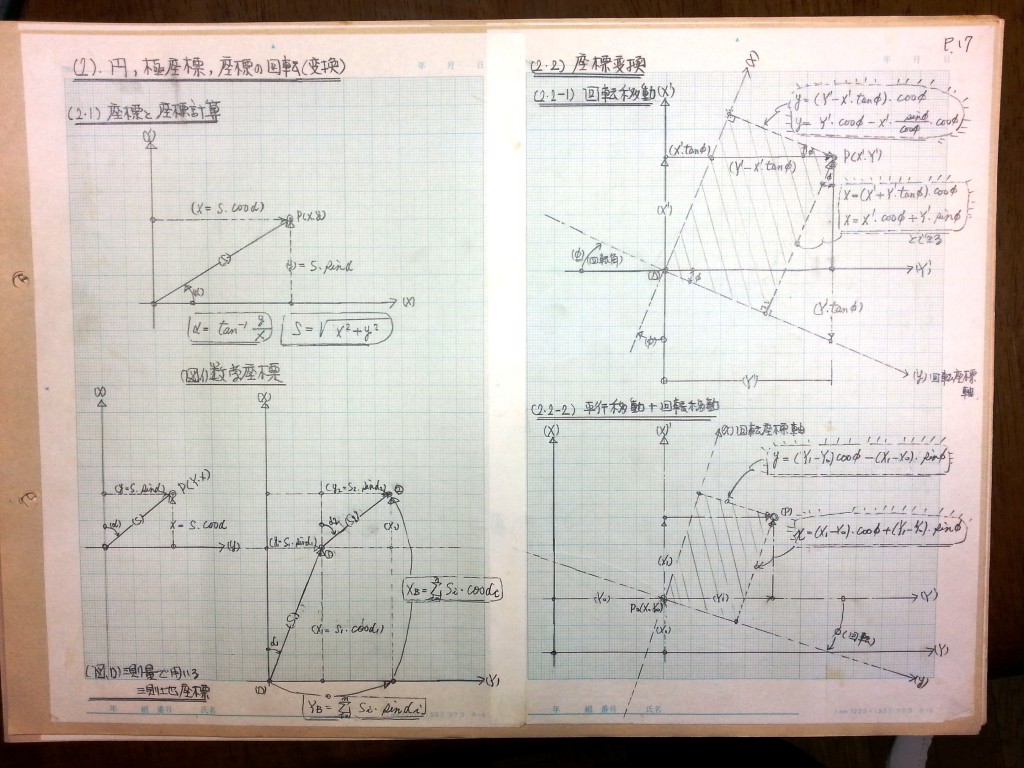 P.17
(2). 円, 極座標, 座標の回転(変換)
(2.1) 座標と座標計算
(Y)
(X = S. cosα)
P(X.Y)
(S)
(y = S. sinα
(α)
(X)
α = tan⁻¹ y/x
S = √x²+y²
数学座標
(X)
(y=S.sinα)
P(Y.X)
(α)
(S)
X = S. cosα
(Y)
(X)
(y₂=S₂.sinα₂)
②
α₂
(S₂)
(X₂)
(y₁=S₁.sinα₁)
①
(S₁)
(X₁ = S₁.cosα₁)
α₁
(0)
(Y)
X_B = Σ Si・cosαi
Y_B = Σ Si・sinαi
測量で用いる
測地座標
年 組 番号 氏名
年 月 日
(2.2) 座標変換
(2.2-1) 回転移動
(X')
(X)
y = (Y'−X'.tanφ). cosφ
y = Y'. cosφ − X'. sinφ/cosφ . cosφ)
(X'.tanφ)
(Y'−X'.tanφ)
P(X'.Y')
X = (X'+Y'.tanφ). cosφ
X = X'. cosφ + Y'. sinφ
とできる
(X')
(φ)
(回転角)
(0)
φ
(Y')
(Y.tanφ)
(φ)
(Y')
(y) 回転座標
軸
(2.2-2) 平行移動+回転移動
(X)
(X)'
(X) 回転座標軸
y = (Y₁−Y₀) cosφ − (X₁−X₀). sinφ
(P)
x = (X₁−X₀). cosφ + (Y₁−Y₀). sinφ
(X₁)
(Y₀)
P₀(X₀.Y₀)
(Y₁)
(Y')
(X₀)
φ(回転)
(Y)
(y)
年 組 番号 氏名